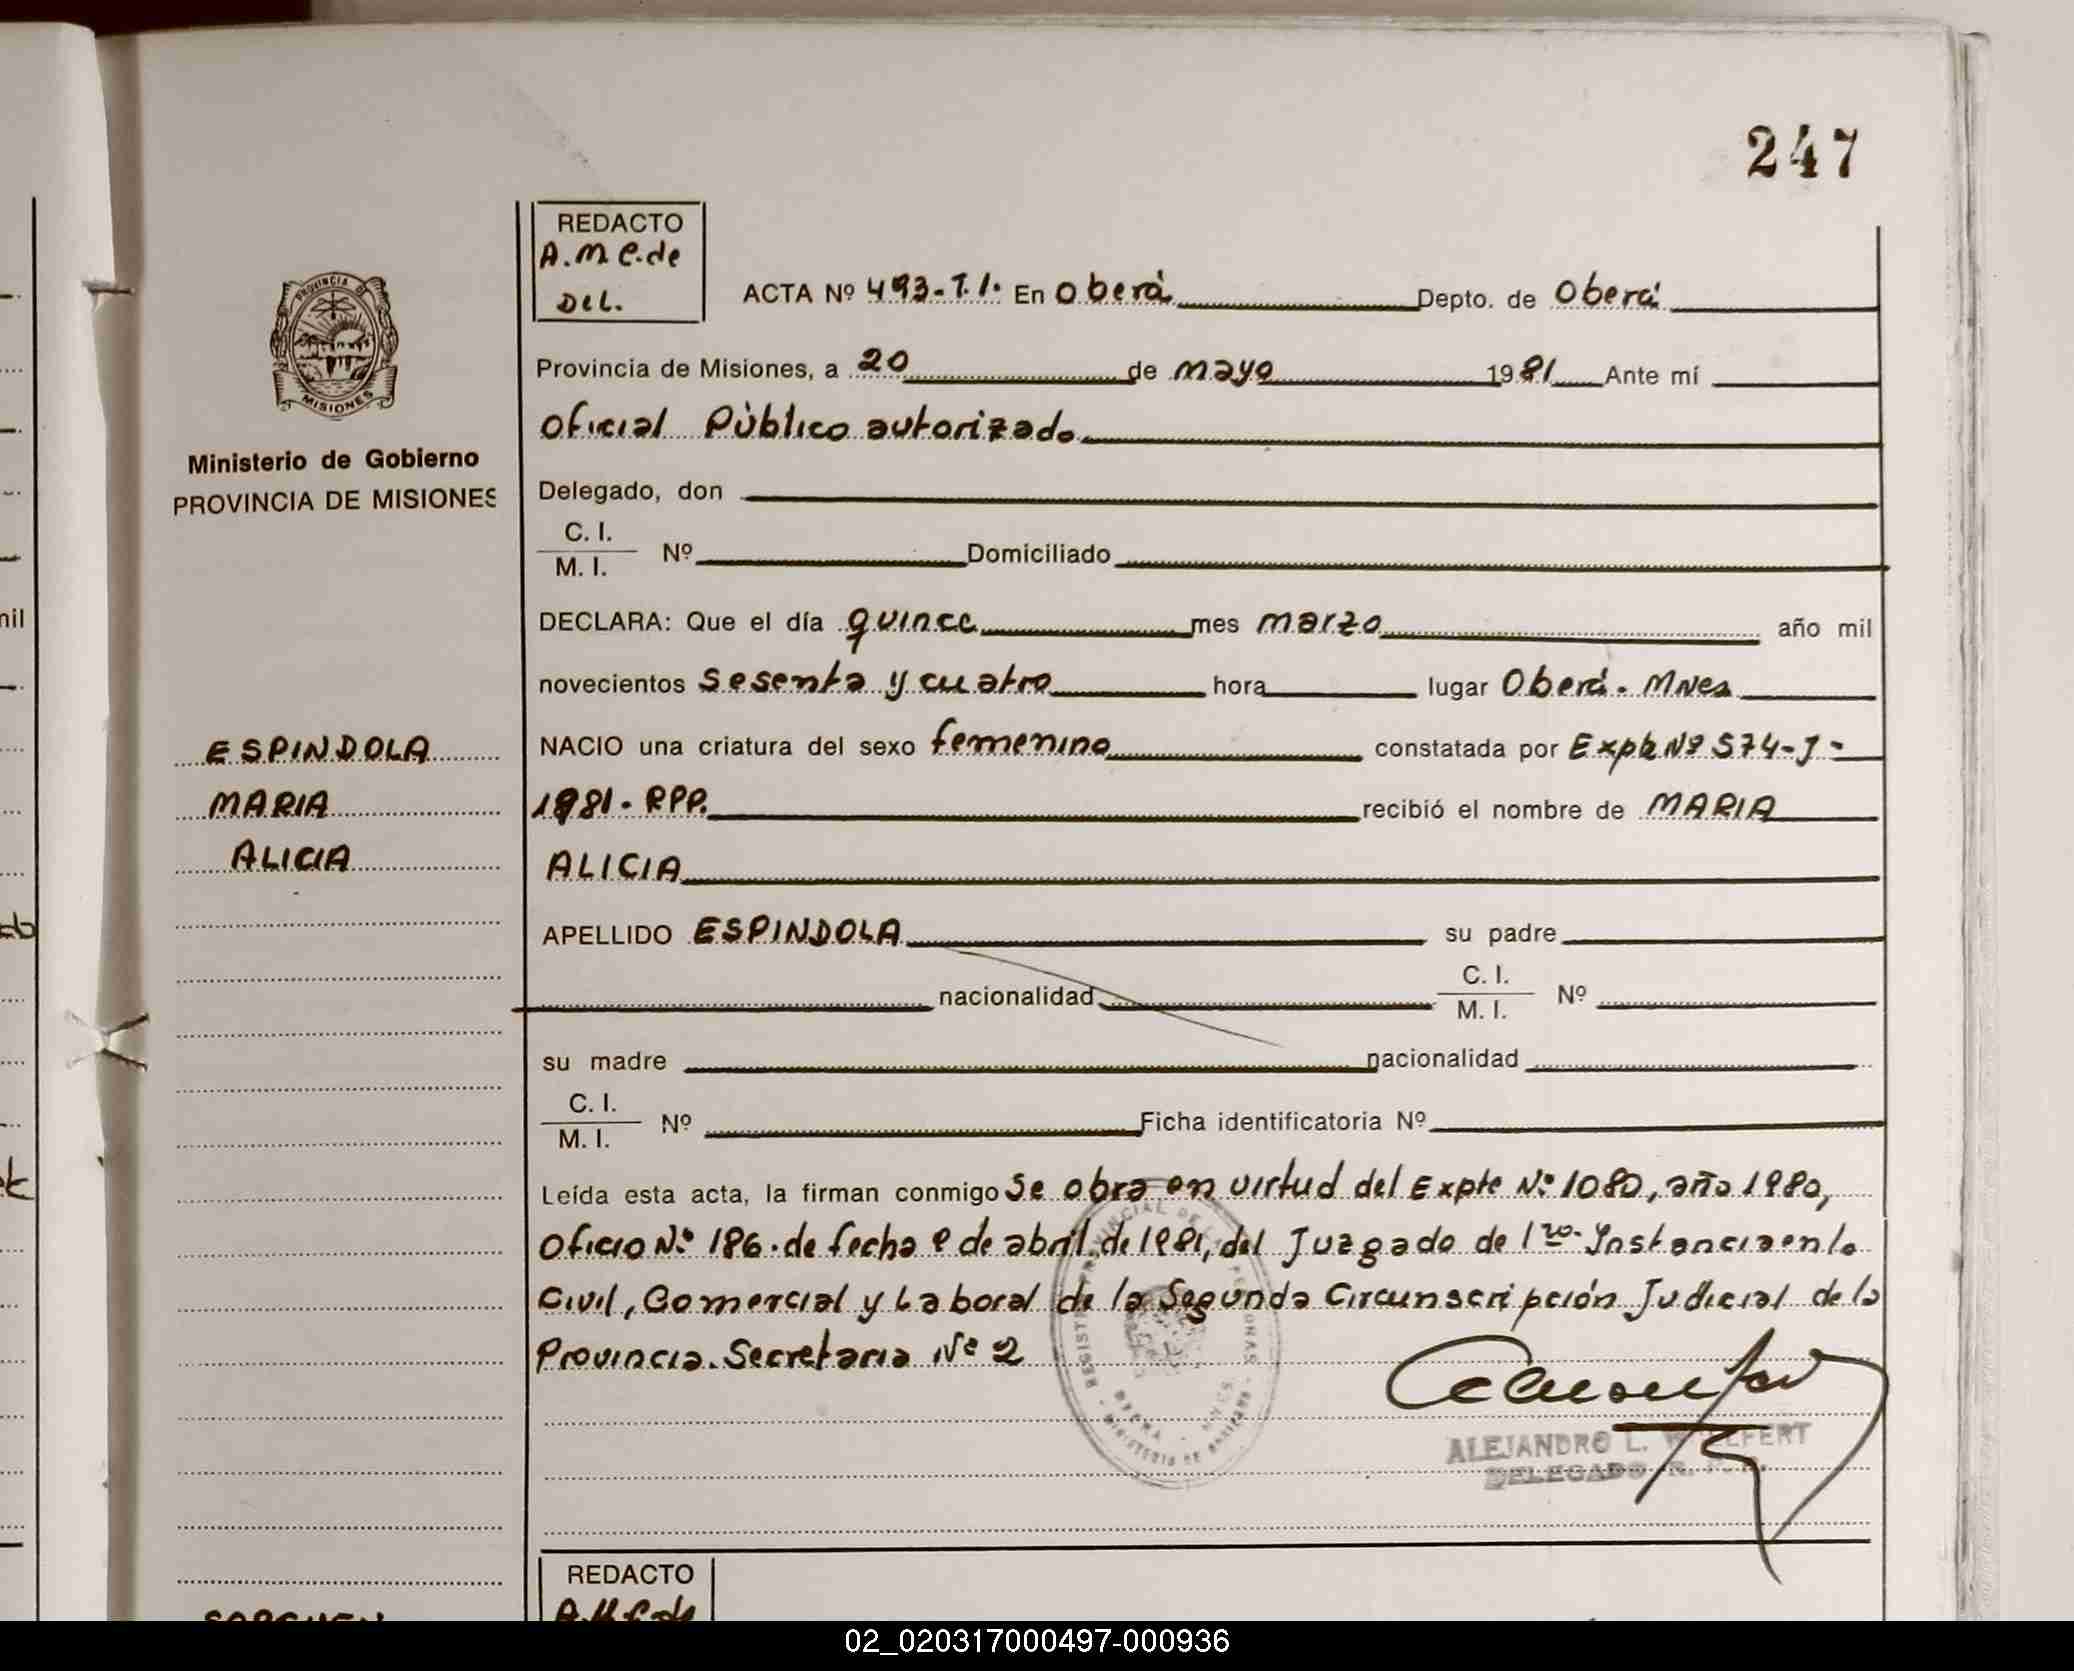 247
REDACTO
A.M.C.de
Del.
ACTA Nº 493-T.I. En Oberá Depto. de Oberá
Provincia de Misiones, a 20 de mayo 1981 Ante mí
Oficial Público autorizado
Delegado, don
C. I.
M. I.
Nº Domiciliado
DECLARA: Que el día quince mes marzo año mil
novecientos sesenta y cuatro hora lugar Oberá. Mnes
NACIO una criatura del sexo femenino constatada por Expte Nº 574-J-
1981. RPP. recibió el nombre de MARIA
ALICIA
APELLIDO ESPINDOLA su padre
nacionalidad C. I.
M. I.
Nº
su madre nacionalidad
C. I.
M. I.
Nº Ficha identificatoria Nº
Leída esta acta, la firman conmigo Se obra en virtud del Expte Nº 1080, año 1980,
Oficio Nº 186. de fecha 9 de abril de 1981, del Juzgado de 1ra. Instancia en lo
Civil, Comercial y Laboral de la Segunda Circunscripción Judicial de la
Provincia. Secretaria Nº 2
ALEJANDRO L. 
DELEGADO R.
PROVINCIA D
MISIONES
Ministerio de Gobierno
PROVINCIA DE MISIONES
ESPINDOLA
MARIA
ALICIA
REDACTO
mil
02_020317000497-000936